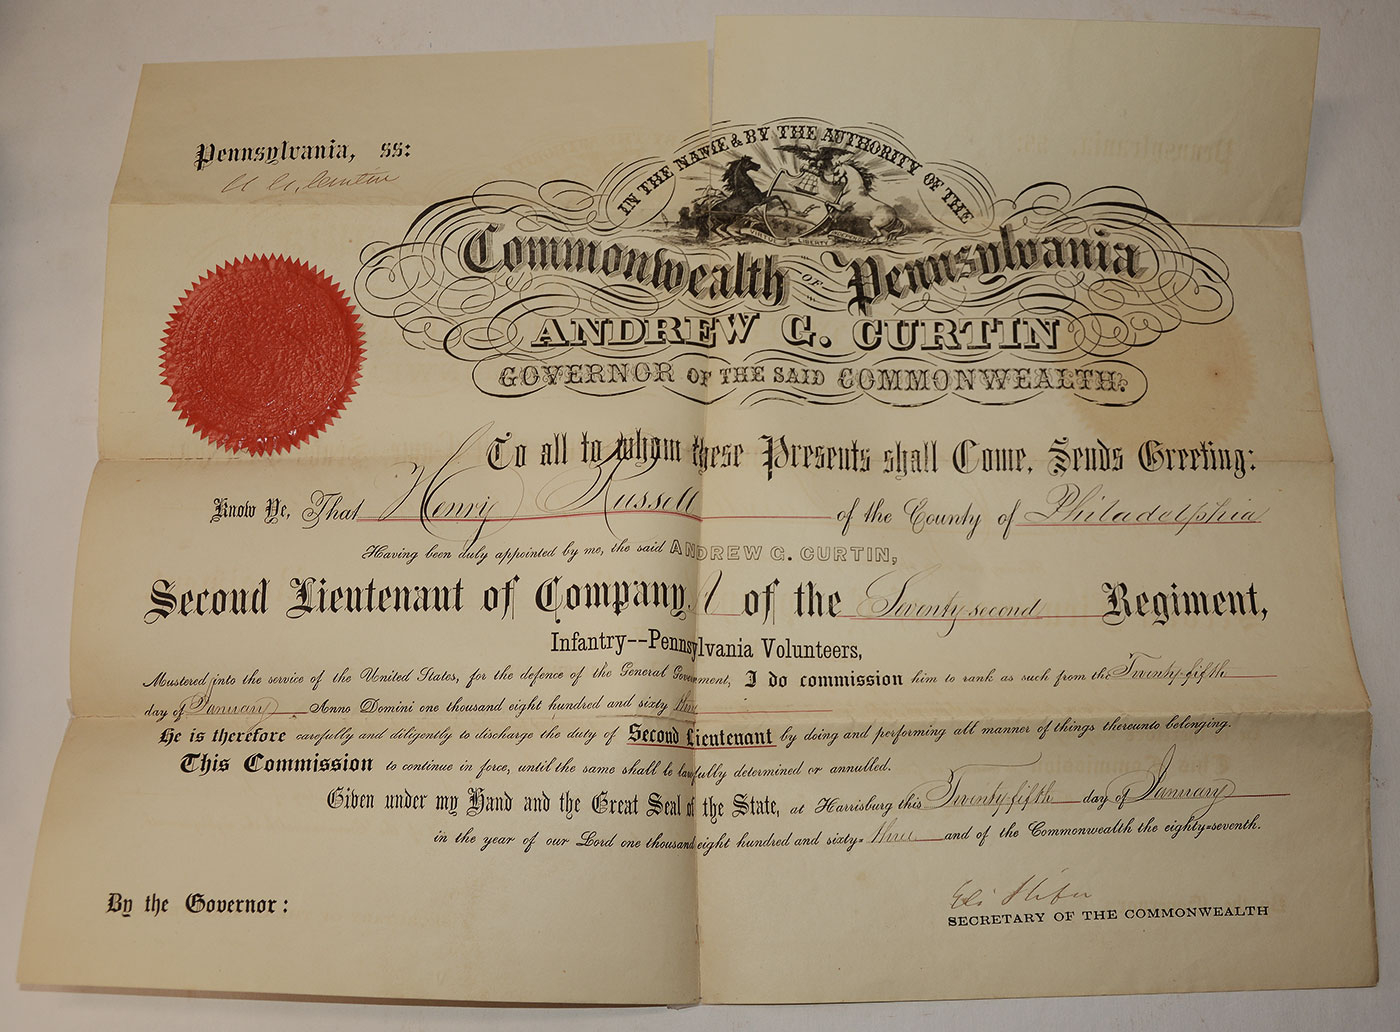 Pennsylvania, ss:
A. G. Curtin
IN THE NAME & BY THE AUTHORITY OF THE
VIRTUE LIBERTY INDEPENDENCE
Commonwealth OF Pennsylvania
ANDREW G. CURTIN
GOVERNOR OF THE SAID COMMONWEALTH:
To all to whom these Presents shall Come, Sends Greeting:
Know Ye, That Henry Russell of the County of Philadelphia
Having been duly appointed by me, the said ANDREW G. CURTIN,
Second Lieutenant of Company of the Seventy second Regiment,
Infantry--Pennsylvania Volunteers,
Mustered into the service of the United States, for the defence of the General Government, I do commission him to rank as such from the Twenty-fifth
day of January Anno Domini one thousand eight hundred and sixty three
He is therefore carefully and diligently to discharge the duty of Second Lieutenant by doing and performing all manner of things thereunto belonging.
This Commission to continue in force, until the same shall be lawfully determined or annulled.
Given under my Hand and the Great Seal of the State, at Harrisburg this Twenty fifth day of January
in the year of our Lord one thousand eight hundred and sixty= three and of the Commonwealth the eighty=seventh.
By the Governor:
Eli Slifer
SECRETARY OF THE COMMONWEALTH